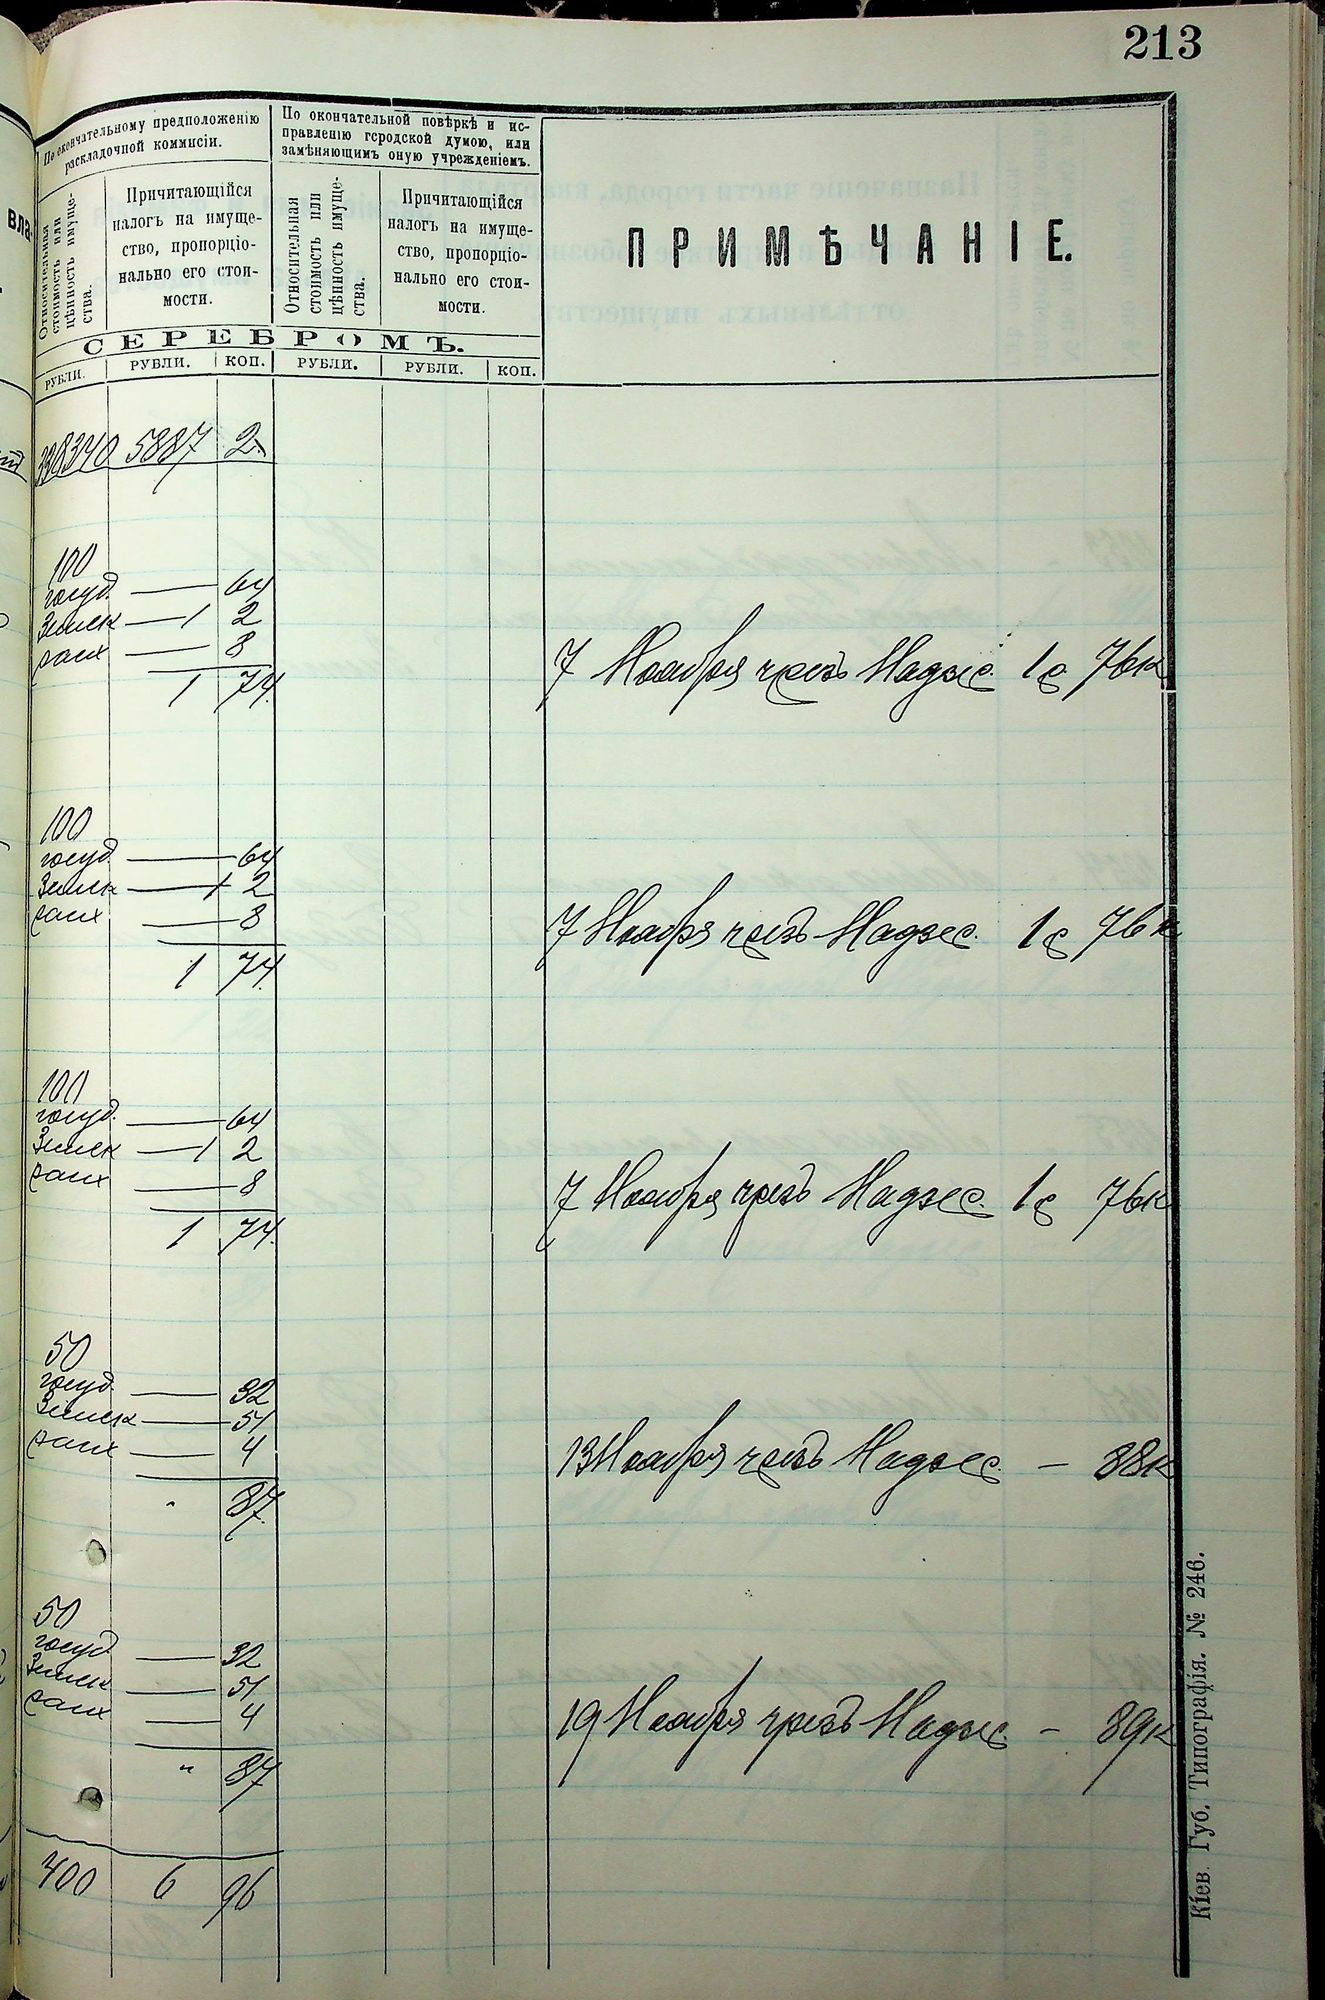 213
По окончательному предположенію
раскладочной коммисіи.
По окончательной повѣркѣ и ис-
правленію городской думою, или
замѣняющимъ оную учрежденіемъ.
Относительная
стоимость или
цѣнность имуще-
ства.
Причитающійся
налогъ на имуще-
ство, пропорціо-
нально его стои-
мости.
Относительная
стоимость или
цѣнность имуще-
ства.
Причитающійся
налогъ на имуще-
ство, пропорціо-
нально его стои-
мости.
ПРИМѢЧАНІЕ.
СЕРЕБРОМЪ.
РУБЛИ. РУБЛИ. КОП. РУБЛИ. РУБЛИ. КОП.
338340 5887 2
100
госуд. — 64
Земск — 1 2
расх — 8
1 74
7 Ноября чрезъ Надзс. 1 р 76 к
100
госуд. — 64
Земск — 1 2
расх — 8
1 74
7 Ноября чрезъ Надзс. 1 р 76 к
100
госуд. — 64
Земск — 1 2
расх — 8
1 74
7 Ноября чрезъ Надзс. 1 р 76 к
50
госуд. — 32
Земск — 51
расх — 4
" 87
13 Ноября чрезъ Надзс. — 88 к
50
госуд — 32
Земск — 51
расх — 4
" 87
19 Ноября чрезъ Надзс. — 89 к
400 6 96
Кіев. Губ. Типографія. № 246.